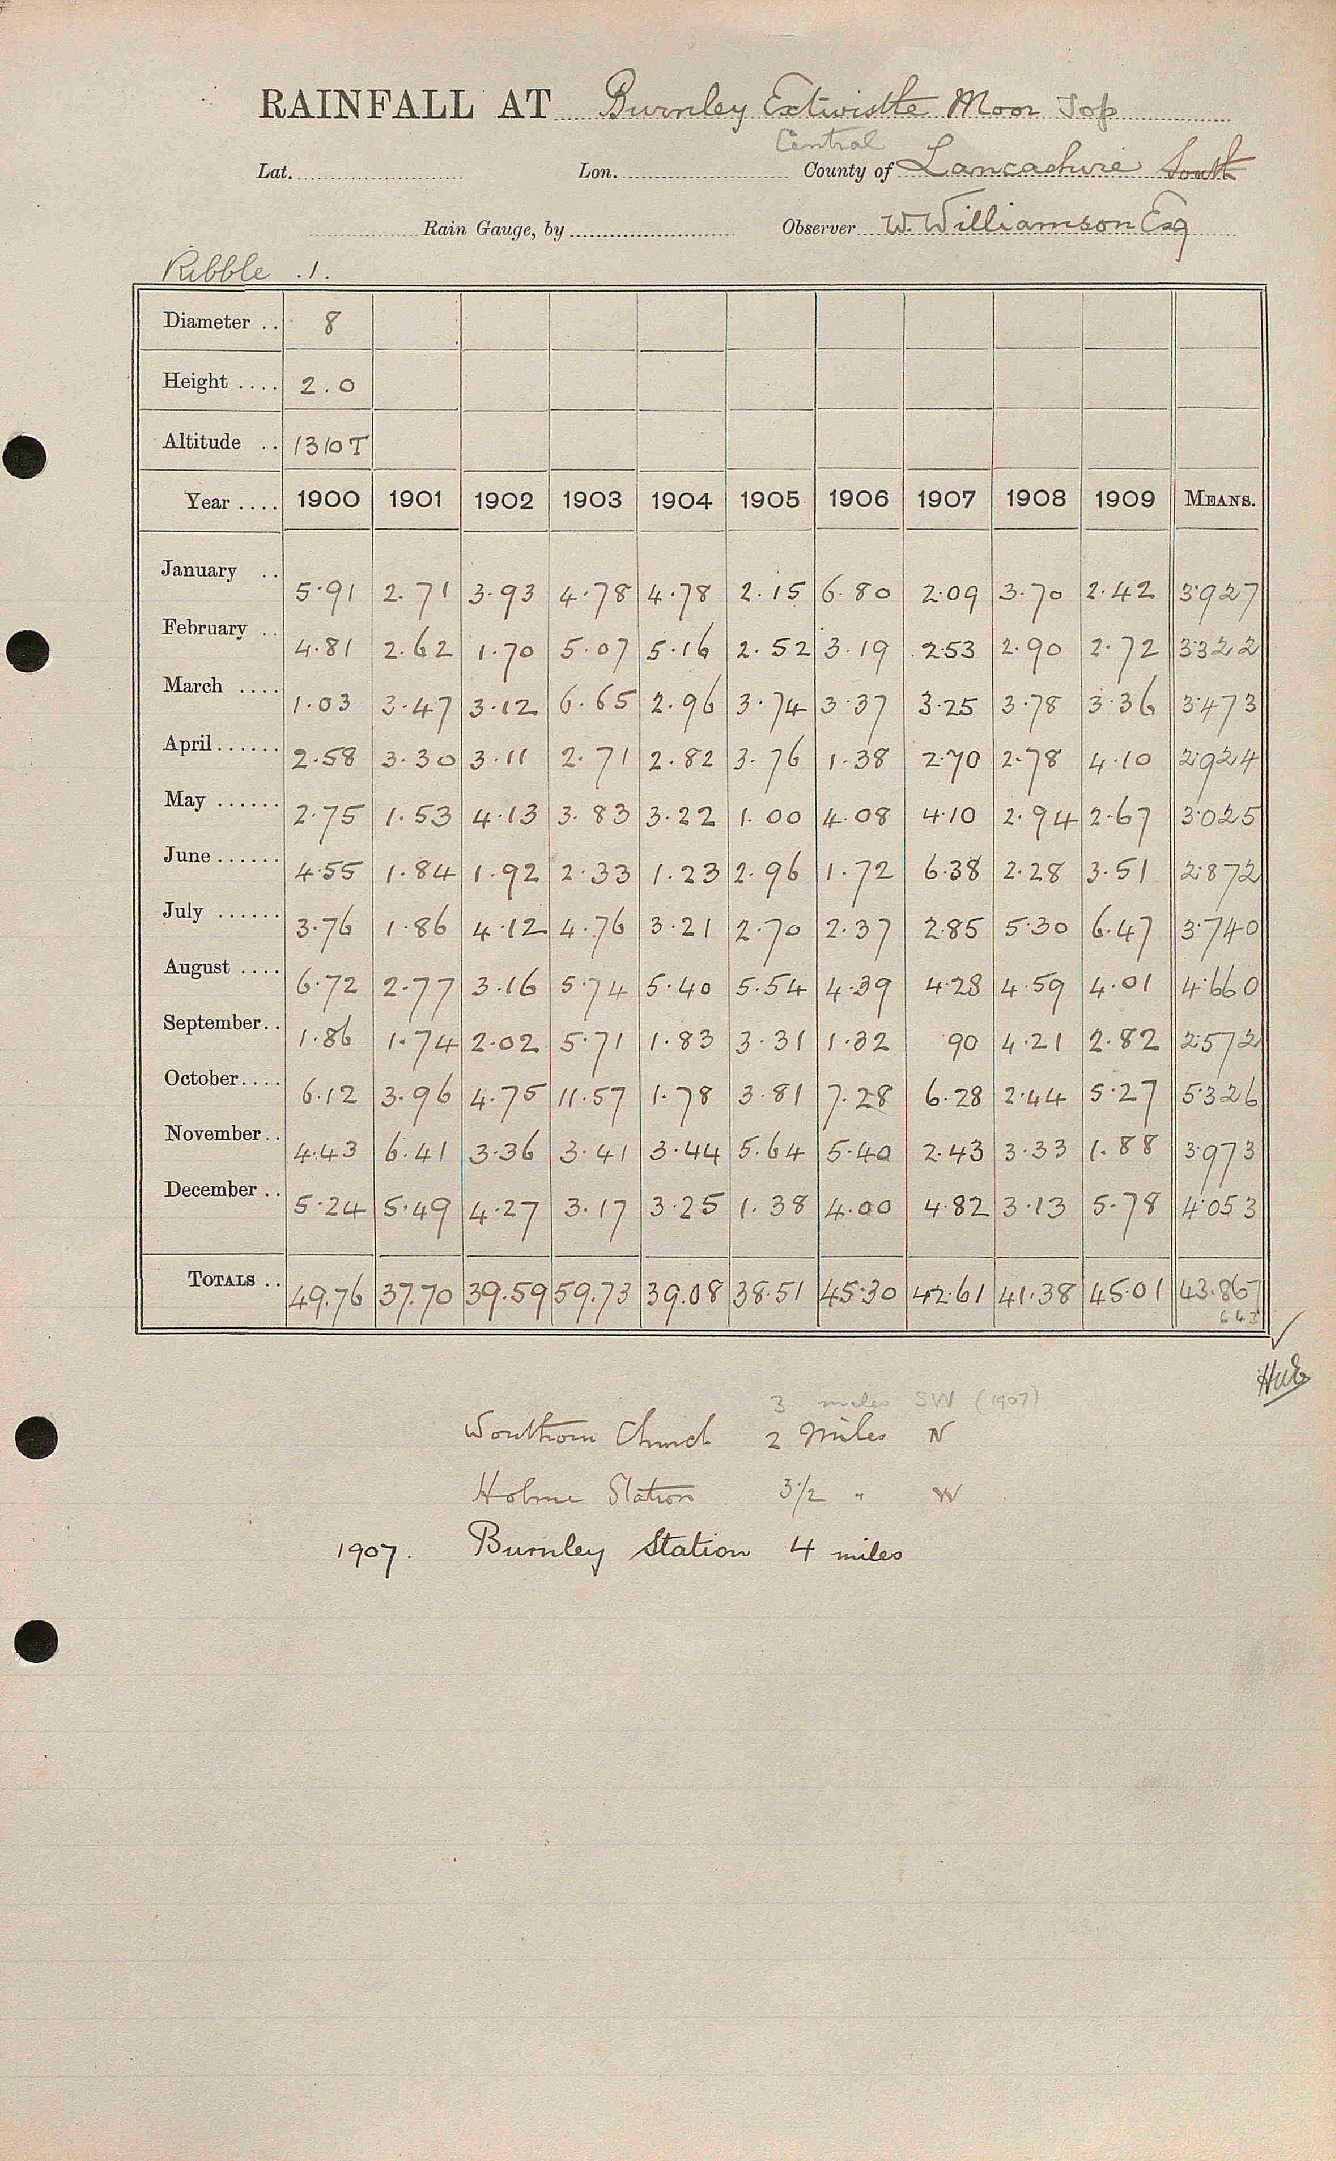 RAINFALL AT Burnley Extwistle Moor Top
Central
Lat. Lon. County of Lancashire South
Rain Gauge, by Observer W. Williamson Esq
Ribble .1.
Diameter .. 8
Height .... 2.0
Altitude .. 1310T
Year .... 1900 1901 1902 1903 1904 1905 1906 1907 1908 1909 MEANS.
January .. 5.91 2.71 3.93 4.78 4.78 2.15 6.80 2.09 3.70 2.42 3.927
February .. 4.81 2.62 1.70 5.07 5.16 2.52 3.19 2.53 2.90 2.72 3322
March .... 1.03 3.47 3.12 6.65 2.96 3.74 3.37 3.25 3.78 3.36 3.473
April ...... 2.58 3.30 3.11 2.71 2.82 3.76 1.38 2.70 2.78 4.10 2.924
May ...... 2.75 1.53 4.13 3.83 3.22 1.00 4.08 4.10 2.94 2.67 3.025
June ...... 4.55 1.84 1.92 2.33 1.23 2.96 1.72 6.38 2.28 3.51 2.872
July ...... 3.76 1.86 4.12 4.76 3.21 2.70 2.37 2.85 5.30 6.47 3.740
August .... 6.72 2.77 3.16 5.74 5.40 5.54 4.39 4.28 4.59 4.01 4.660
September .. 1.86 1.74 2.02 5.71 1.83 3.31 1.32 .90 4.21 2.82 2.572
October .... 6.12 3.96 4.75 11.57 1.78 3.81 7.28 6.28 2.44 5.27 5.326
November .. 4.43 6.41 3.36 3.41 3.44 5.64 5.40 2.43 3.33 1.88 3.973
December .. 5.24 5.49 4.27 3.17 3.25 1.38 4.00 4.82 3.13 5.78 4.053
TOTALS .. 49.76 37.70 39.59 59.73 39.08 38.51 45.30 42.61 41.38 45.01 43.867
643
3 miles SW (1907)
Worsthorn Church 2 Miles N
Holme Station 3 1/2 " W
1907. Burnley Station 4 miles